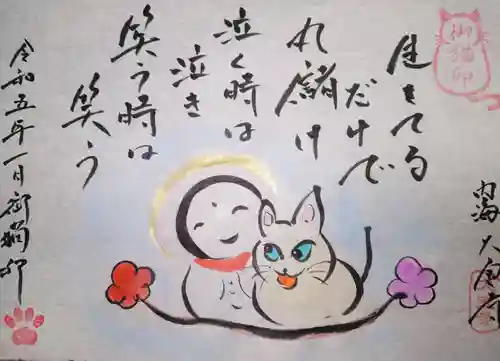 御猫印
生きてる
だけで
丸儲け
泣く時は
泣き
笑う時は
笑う
令和五年一月御猫印